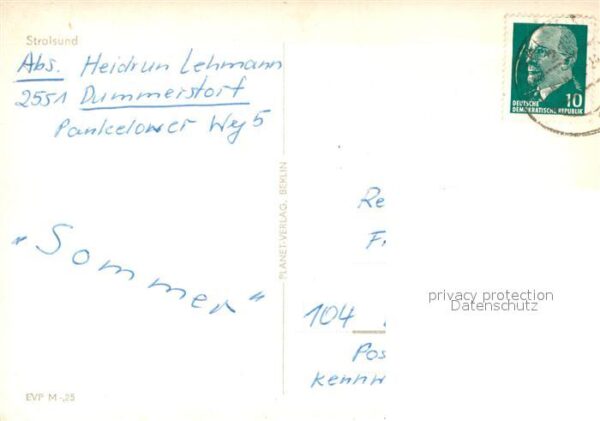 Stralsund
Abs. Heidrun Lehmann
2551 Dummerstorf
Pankelower Weg 5
"Sommer"
PLANET-VERLAG, BERLIN
EVP M -,25
DEUTSCHE
DEMOKRATISCHE REPUBLIK
10
Re
Fr
104
Pos
Kennw
privacy protection
Datenschutz